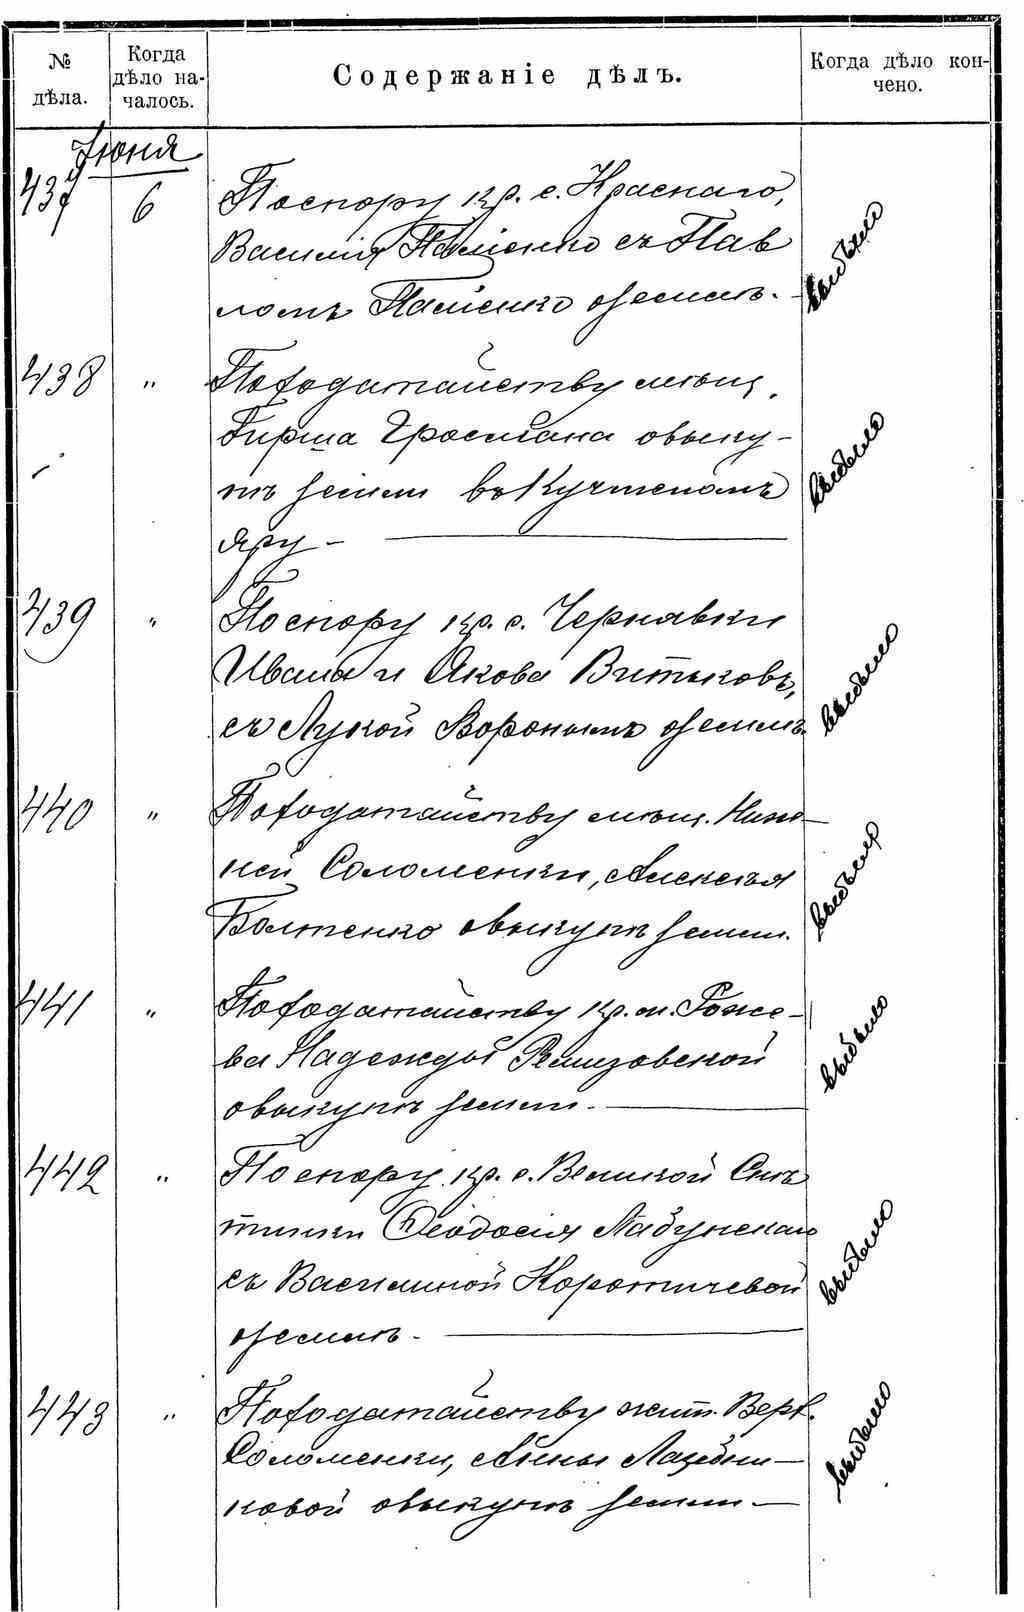 № дѣла.
Когда дѣло на-
чалось.
Содержаніе дѣлъ.
Когда дѣло кон-
чено.
Іюня
437 6 По спору кр. с. Краснаго,
Василія с Пав
ломъ о землѣ.
выбыло
438 " По ходатайству мѣщ.
Гирша Гросмана о выку-
пѣ земли въ Кучменомъ
Яру -
выбыло
439 " По спору кр. с. Чернявки
Ивана и Якова Витыковъ,
съ Лукой Воронымъ о землѣ
выбыло
440 " По ходатайству мѣщ. Ниж-
ней Соломенки, Алексѣя
Болтенко о выкупѣ земли.
выбыло
441 " По ходатайству кр. м. Роже-
ва Надежды Ремизовской
о выкупѣ земли.
выбыло
442 " По спору кр. с. Великой Сни
тинки Ѳеодосія Лабунскаго
съ Василиной Коротичевой
о землѣ.
выбыло
443 " По ходатайству жит. Верх.
Соломенки, Анны
ковой о выкупѣ земли
выбыло